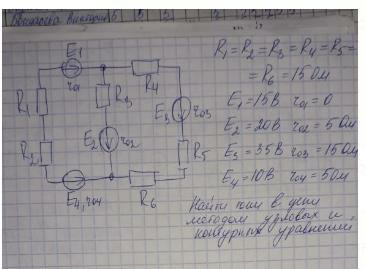 E1
r01
R1
R3
R4
E3 r03
E2 r02
R2
R5
E4, r04
R6
R1=R2=R3=R4=R5=
=R6=15Ом
E1=15В r01=0
E2=20В r02=5Ом
E3=35В r03=15Ом
E4=10В r04=5Ом
Найти токи в цепи
методом узловых и
контурных уравнений